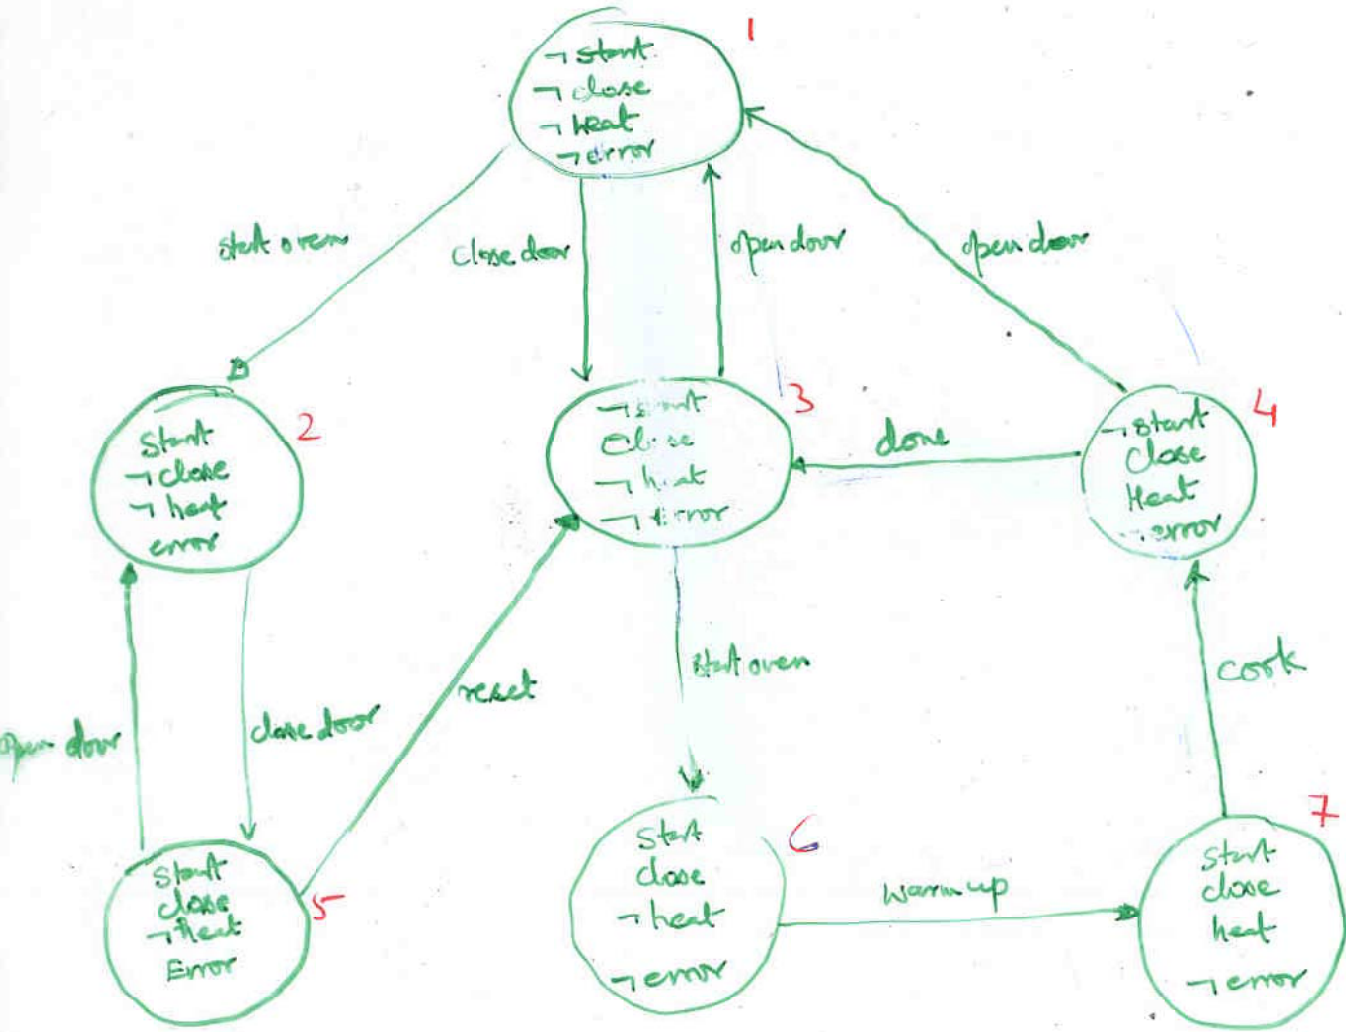 1
¬ start
¬ close
¬ heat
¬ error
start oven
close door
open door
open door
2
Start
¬ close
¬ heat
error
3
¬ start
Close
¬ heat
¬ error
done
4
¬ start
Close
Heat
¬ error
open door
close door
reset
start oven
cook
5
Start
close
¬ heat
Error
6
Start
close
¬ heat
¬ error
warm up
7
Start
close
heat
¬ error